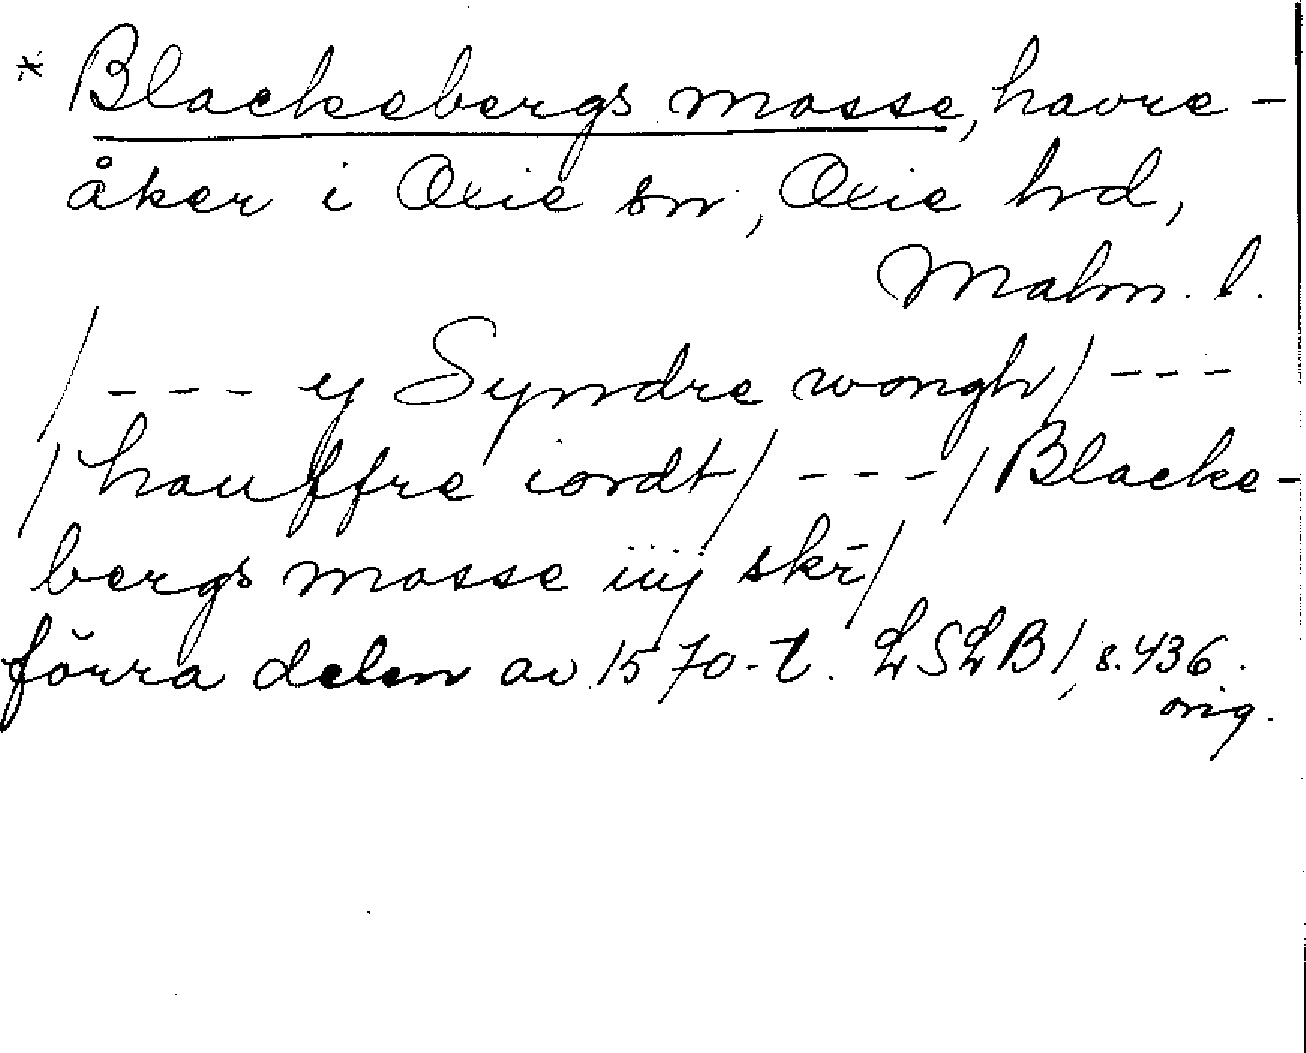 * Blackebergs mosse, havre-
åker i Oxie sn, Oxie hd,
Malm. l.
/--- y Syndre wongh/ ---
/hauffre iordt/ ---/Blacke-
bergs mosse iiij skr̄/
förra delen av 1570-t. LSLB1, s. 436.
orig.